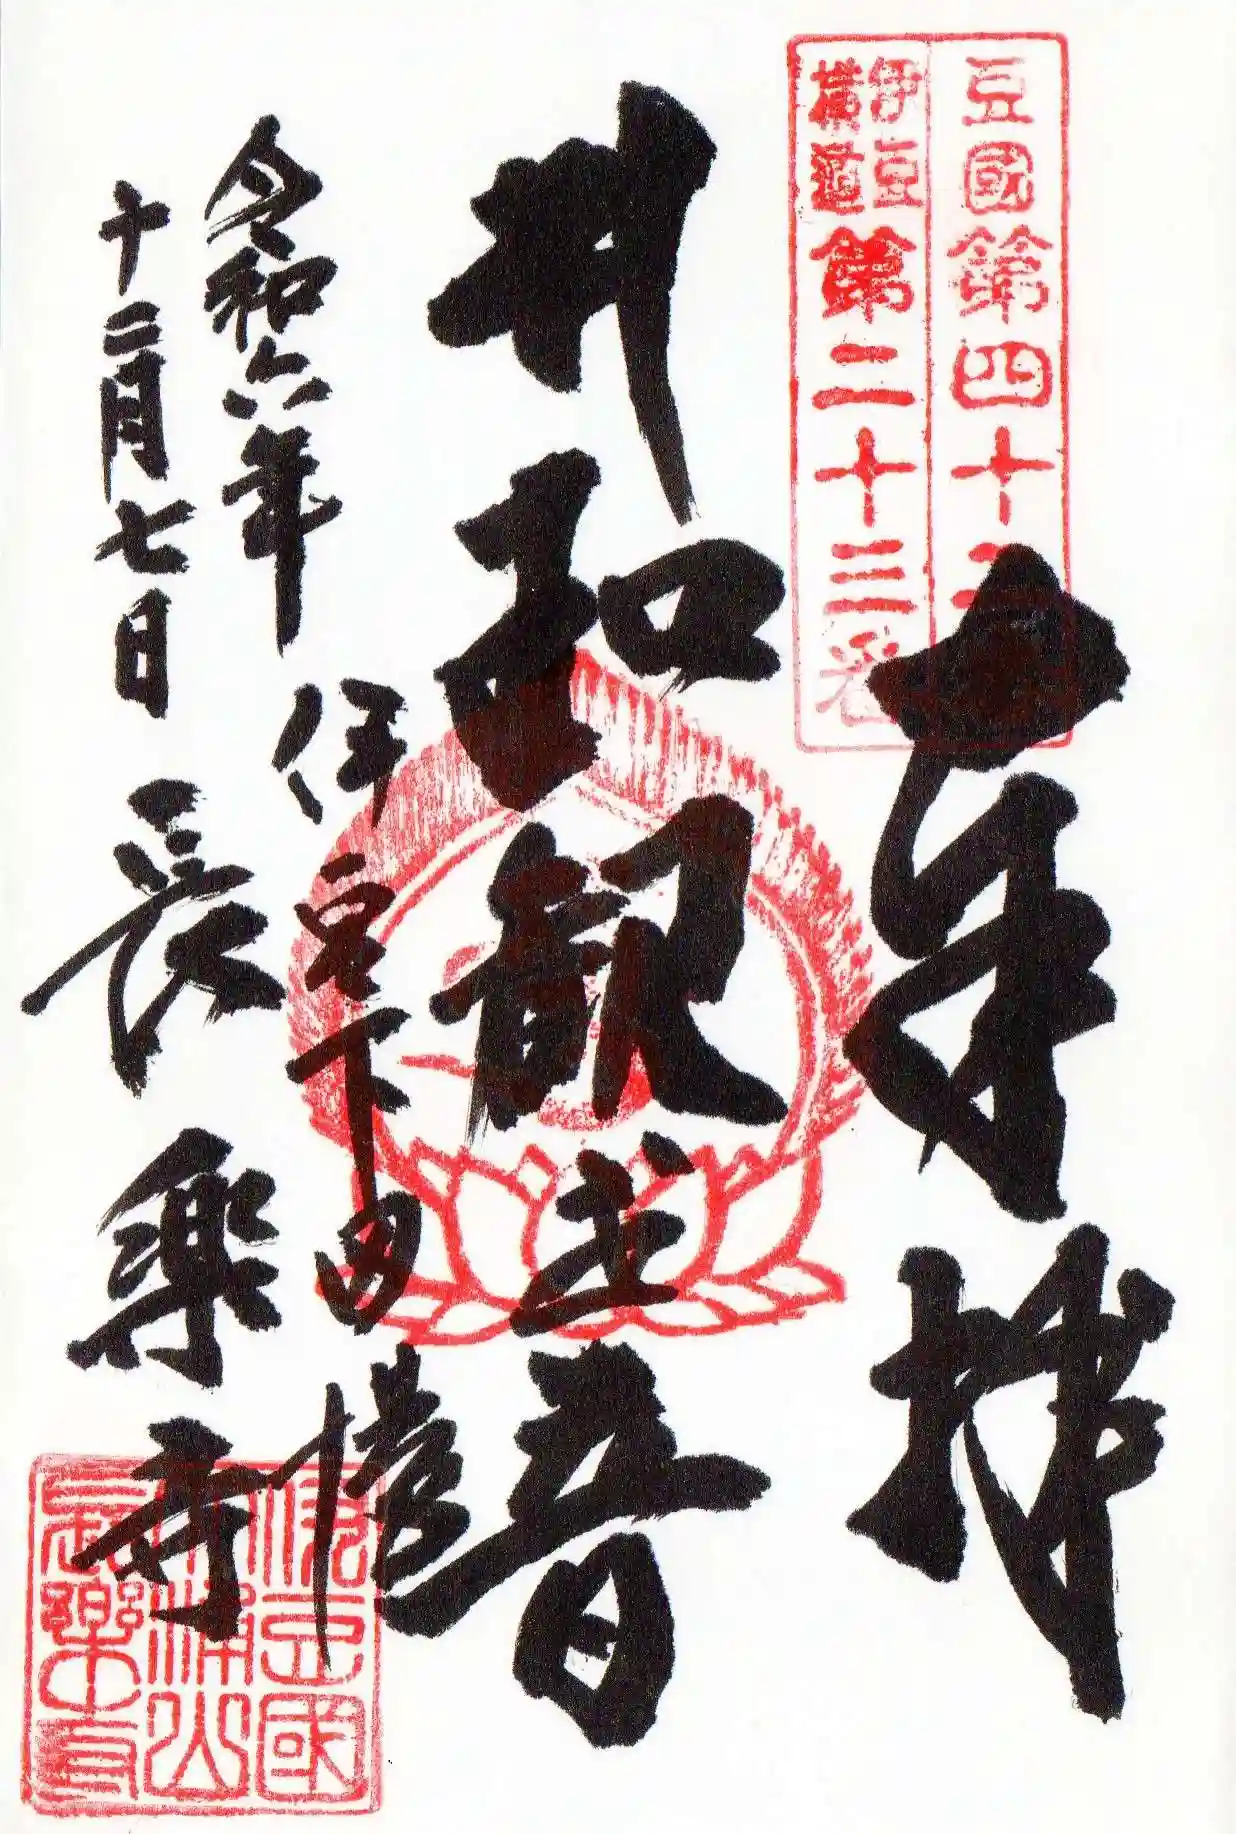 豆國第四十二
伊豆横道第二十三番
奉拝
観世音
伊豆下田
令和六年
十二月七日
長楽寺
豆國
浦山
長樂寺